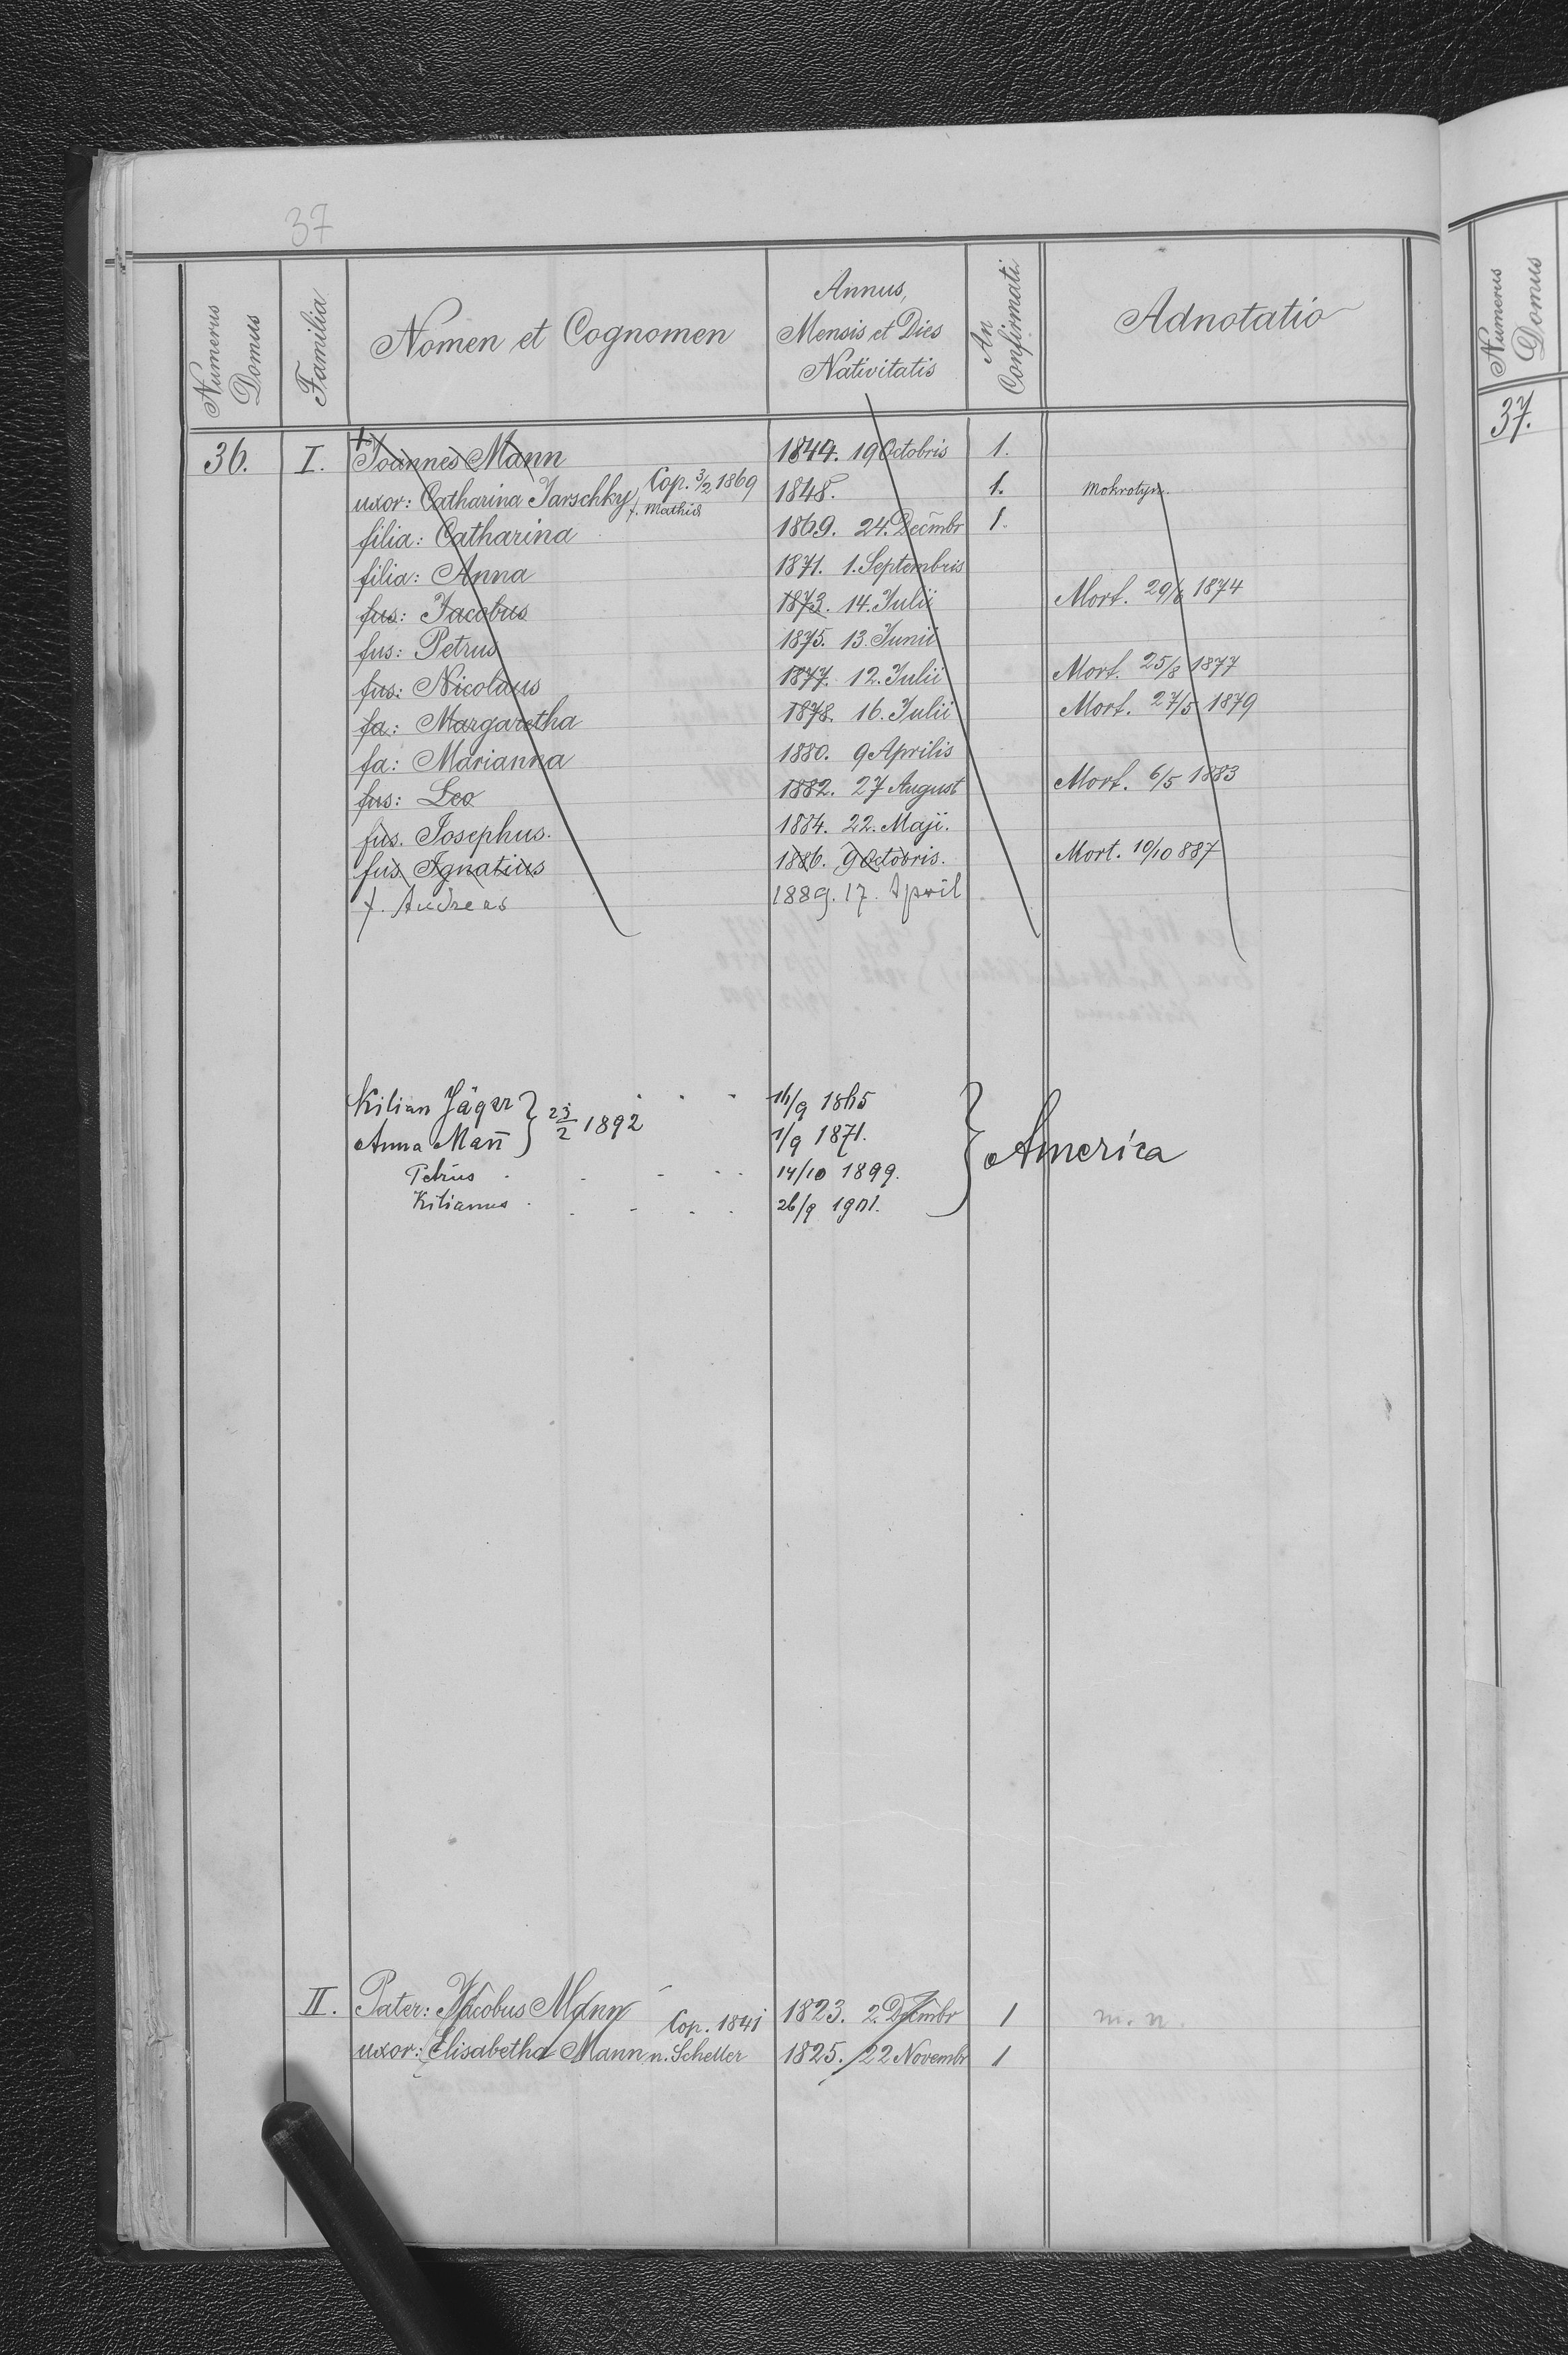 37
Numerus Domus
Familia
Nomen et Cognomen
Annus, Mensis et Dies Nativitatis
An Confirmati
Adnotatio
Numerus Domus
37.
36. I. Joannes Mann 1844. 19 Octobris 1.
uxor: Catharina Jarschky Cop. 3/2 1869 1848. 1. Mokrotyn.
f. Mathis
filia: Catharina 1869. 24. Decmbr 1.
filia: Anna 1871. 1. Septembris
fus: Jacobus 1873. 14. Julii Mort. 29/6 1874
fus: Petrus 1875. 13. Junii
fus: Nicolaus 1877. 12. Julii Mort. 25/8 1877
fa: Margaretha 1878. 16. Julii Mort. 27/5 1879
fa: Marianna 1880. 9 Aprilis
fus: Leo 1882. 27 August Mort. 6/5 1883
fus. Josephus. 1884. 22. Maji.
fus Ignatius 1886. 9 Octobris. Mort. 10/10 887
f. Andreas 1889. 17. April
Kilian Jäger } 23/2 1892 16/9 1865
Anna Mañ 1/9 1871. } America
Petrus 14/10 1899.
Kilianus 26/9 1901.
II. Pater: Jacobus Mann Cop. 1841 1823. 2. Decmbr 1
uxor: Elisabetha Mann n. Scheller 1825. 22 Novembr 1